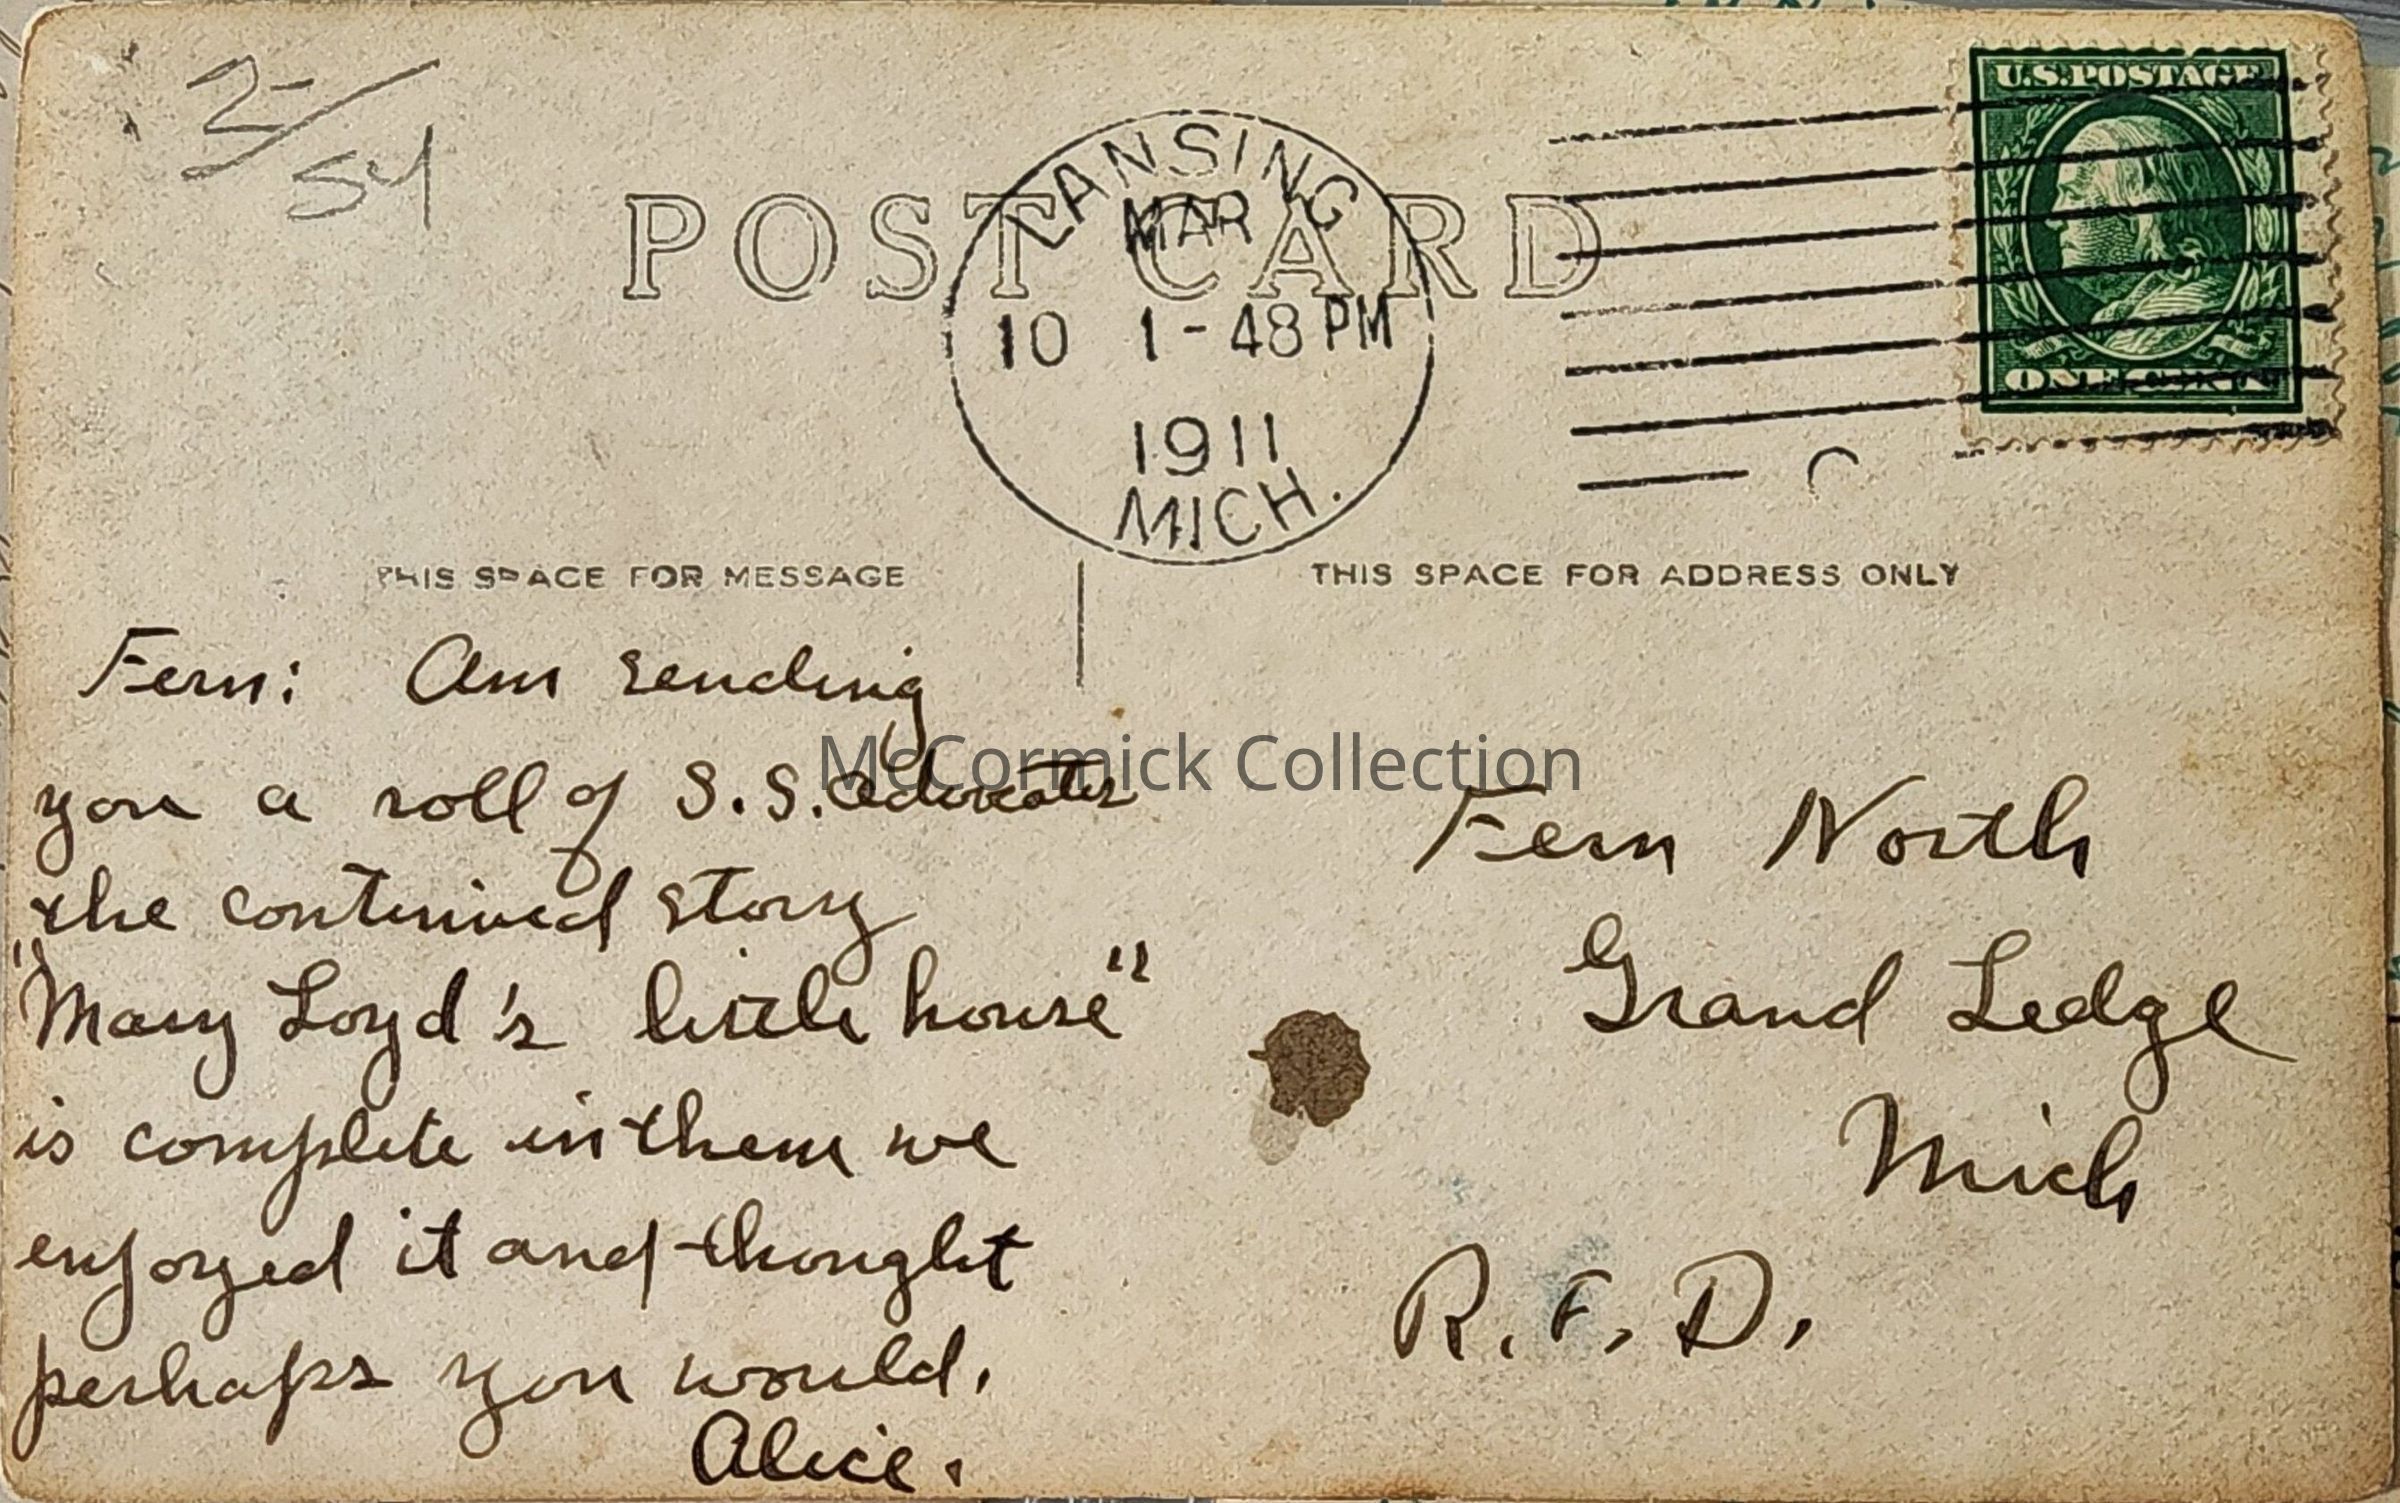 2-/54
U.S.POSTAGE
LANSING
MAR
POST CARD
10 1-48 PM
ONE CENT
1911
MICH.
THIS SPACE FOR MESSAGE
THIS SPACE FOR ADDRESS ONLY
Fern: Am sending
you a roll of S.S. advocates
the continued story
"Mary Loyd's little house"
is complete in them we
enjoyed it and thought
perhaps you would.
Alice.
McCormick Collection
Fern North
Grand Ledge
Mich
R.F.D.